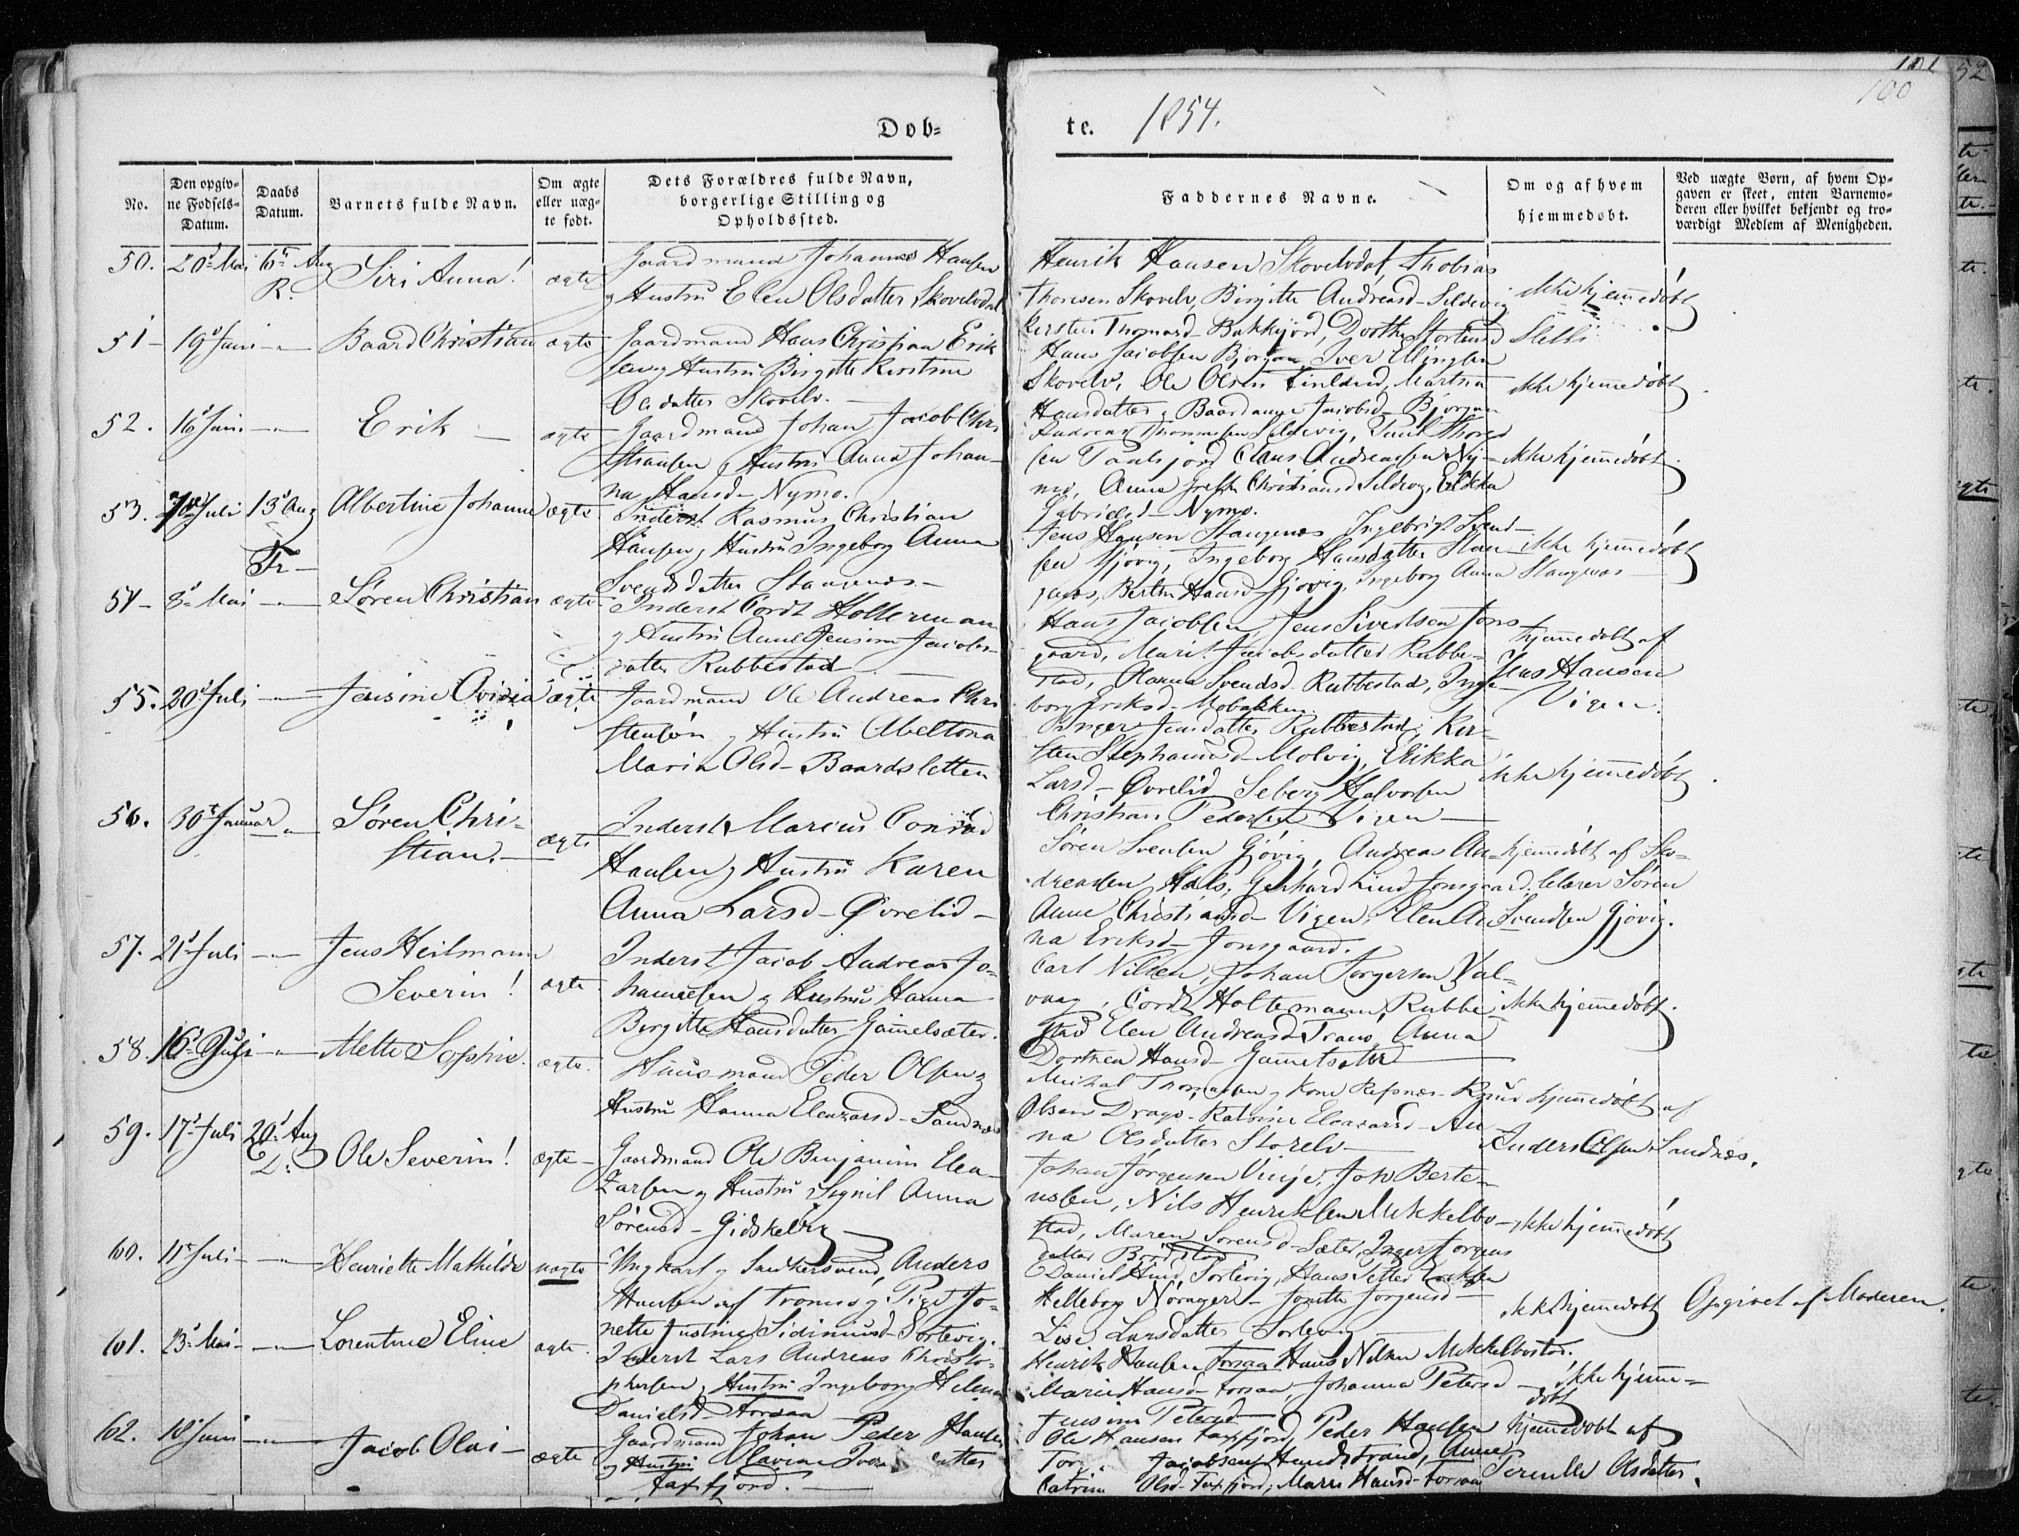 101
100
52
Døb-
te. 1854.
No.
Den opgiv-
ne Fødsels-
Datum.
Daabs
Datum.
Barnets fulde Navn.
Om ægte
eller uæg-
te født.
Dets Forældres fulde Navn,
borgerlige Stilling og
Opholdssted.
Faddernes Navne.
Om og af hvem
hjemmedøbt.
Ved uægte Børn, af hvem Op-
gaven er skeet, enten Barnemo-
deren eller hvilket bekjendt og tro-
værdigt Medlem af Menigheden.
50. 20de Mai 6te Aug
R.
Siri Anna!
ægte
Gaardmand Johannes Hansen
og Hustru Elen Olsdatter Skovelvdal
Henrik Hansen Skovelvdal, Thobias
Thoresen Skovelv, Birgitte Andreasd Seldevig
Kirsten Thomasd- Bakkejord, Dorthe Storlund
ikke hjemmedøbt
51- 19 Juni -"-
Baard Christian
ægte
Gaardmand Hans Christian Erik
sen og Hustru Birgitte Kirstine
Olsdatter Skovelv.-
Hans Jacobsen Bjorgan Iver Ellingsen
Skovelv, Ole Olsen Finland, Martha
Hansdatter, Baardanna Jacobsd- Bjorgan
ikke hjemmedøbt
52. 16 Juni -"-
Erik -
ægte
Gaardmand Johan Jacob Chri
stiansen og Hustru Anna Johan-
na Hansd- Nymo.
Andreas Thomassen Seldevig, Paul Thores
sen Taalsjord Claus Andreassen Ny-
mo, Anne Grethe Christiansd Seldevig, Erikka
Gabrielsd- Nymo.
ikke hjemmedøbt.
53. Juli 13 Aug
Tr-
Albertine Johanne
ægte
Inderst Rasmus Christian
Hansen og Hustru Ingeborg Anna
Svendsdatter Stangnes-
Jens Hansen Stangenes Ingebrigt Svend-
sen Gjøvig, Ingeborg Hansdatter Stan-
genes, Berthe Hansd Gjøvig, Ingeborg Anna Stangenes
ikke hjemmedøbt
54- 8 Mai -"-
Søren Christian
ægte
Inderst Cordt Holtermann
og Hustru Anne Jensine Jacobs-
datter Rubbestad
Hans Jacobsen Jens Sivertsen Jons
gaard, Marit Jacobsdatter Rubbe-
stad, Hanna Svendsd. Rubbestad, Inge-
borg Eriksd- Mobakken.
hjemmedøbt af
Jens Hansen
Vigen.
55. 20 Juli -"-
Jensine Ovidia
ægte
Gaardmand Ole Andreas Chri
stensen og Hustru Abeltona
Maria Olsd- Baardsletten
Inger Jensdatter Rubbestad, Kir-
sten Stephansd- Molvig, Erikka
Larsd- Øvrelid Seberg Halvorsen
Christian Pedersen Vigen-
ikke hjemmedøbt
56. 30te Januar "
Søren Chri-
stian.-
ægte
Inderst Marius Conrad
Hansen og Hustru Karen
Anna Larsd- Øvrelid-
Søren Svensen Gjøvig, Andreas An-
dreassen Hals, Gerhard Lind Jonsgaard,
Anne Christiansd- Vigen, Elen An
na Eriksd- Jonsgaard.
hjemmedøbt af Sko-
lelærer Søren
Svendsen Gjøvig.
57. 21 Juli -"-
Jens Heilmann
Severin!
ægte
Inderst Jacob Andreas Jo-
hannesen og Hustru Hanna
Birgitte Hansdatter Gamelsæter.
Carl Nilsen, Johan Torgersen Val-
vaag, Cordt Holtermann, Rubbe-
stad Elen Andreasd- Tranø, Anna
Dorthea Hansd- Gammelsæter
ikke hjemmedøbt.
58. 16 Juli -"-
Mette Sophie.
ægte.
Huusmand Peder Olsen og
Hustru Hanna Eleazarsd- Sandnæs
Michal Thomassen og Kone Refsnæs- Knud
Olsen Drage- Katrine Eleazarsd- An
na Olsdatter Storelv-
hjemmedøbt af
Anders Olsen Sandnæs.
59. 17 Juli 20 Aug
D.
Ole Severin!
ægte-
Gaardmand Ole Benjamin Elea-
zarsen og Hustru Signil Anna
Sørensd- Gidskelv-
Johan Jørgensen Vinje, Joh Berte-
nssen, Nils Henriksen Mikkelbo-
stad, Maren Sørensd- Sæter, Inger Jørgens
datter Bondstad
ikke hjemmedøbt
60. 11 Juli- -"-
Henriette Mathilde
uægte
Ungkarl og Snedkersvend, Anders
Hansen af Tromsø og Pige Jo-
nette Justine Sidiniusd- Sortevig.
Daniel Hind, Sortevig, Hans Peter Eriksen
Helleborg Norager- Jonette Jørgensd-
Lise Larsdatter Sortevig
ikke hjemmedøbt
Opgivet af Moderen.
61. 23 Mai- -"-
Lorentine Eline
ægte
Inderst Lars Andreas Christo-
phersen og Hustru Ingeborg Helena
Danielsd- Forsaa
Henrik Hansen Forsaa Hans Nilsen Mikkelbostad.
Marie Hansd- Forsaa, Johanna Petersd-
Jensine Petersd
ikke hjemme-
døbt
62. 18 Juni -"-
Jacob Olai-
ægte
Gaardmand Johan Peder Hansen
og Hustru Olavine Iver datter
Faxfjord.-
Ole Hansen Faxfjord, Peder Hansen
Jacobsen Hundstrand, Anne
Catrine Olsd- Faxfjord, Maren Hansd- Forsaa
hjemmedøbt af
Pernille Olsdatter.